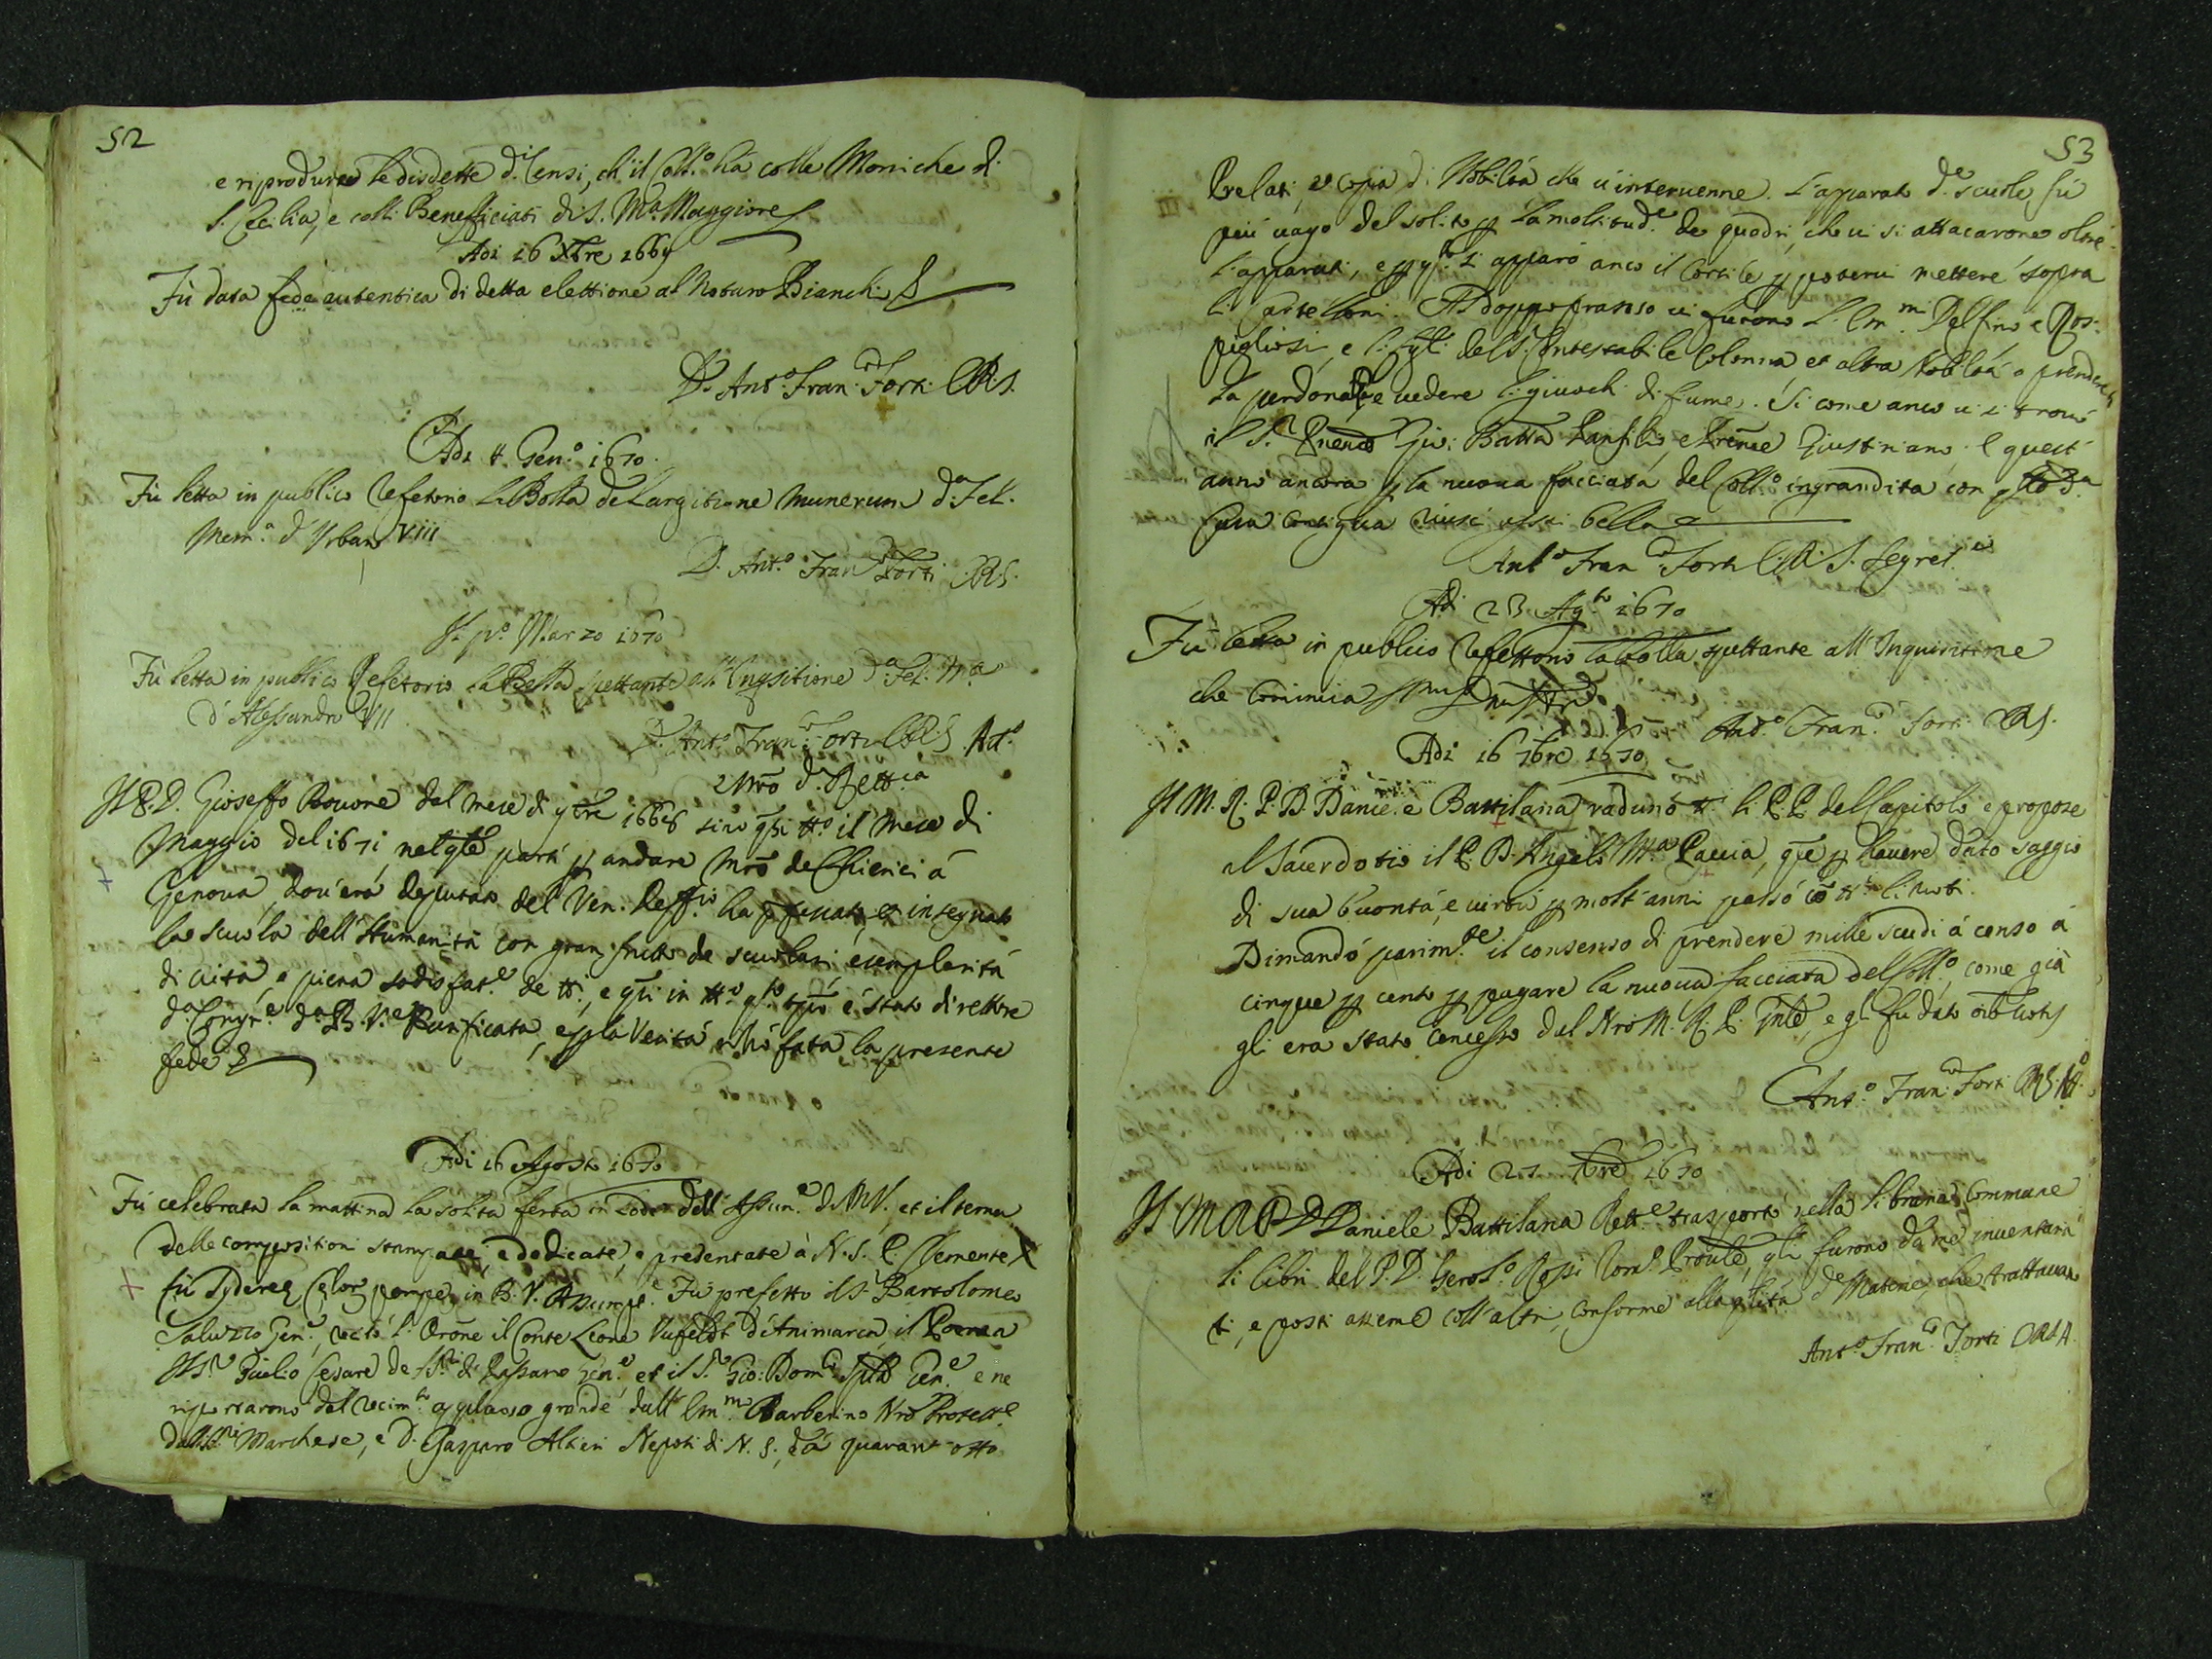 52
e riprodurre le disdette d. Censi, ch'il Coll.º hà colle Moniche di
S. Cecilia, e colli Benefficiati di S. Mª Maggiore
Adi 16 Xbre 1669
Fù data fede autentica di detta elettione al Notaro Bianchi
D. Ant.º Fran.co Forti CRS.
Adi 4 Gen.º 1670.
Fù letta in publico Refetorio la Bolla de Largitione Munerum d. Fel.
Mem.ª d'Urbano VIII
D. Ant.º Fran.co Forti CRS.
A pº Marzo 1670
Fù letta in publico Refetorio la Bolla spettante all'Inqsitione d. Fel. Mª
d'Alessandro VII
D. Ant.º Fran.co Forti CRS. Att.º
Mrō d. Rett.ca
Il P. D. Gioseffo Bovone dal mese di 9bre 1668 sino qsi tt.º il mese di
Maggio del 1671 nel qle partì p andare Mrō de Chierici à
Genova, dov'era deputato del Ven. Deff.rio ha et insegnato
la scuola dell'Humanità con gran frutto de scuolari, esemplarità
di vita, e piena sodisfat.e de tt.i, e qsi in tt.º qsto tpō è stato direttore
d.ª Congr.e d.ª B. V.e Purificata, e p la Verità n'hò fata la presente
fede
Adi 16 Agosto 1670
Fù celebrata la mattina la solita festa in lode dell'Assun.e d. M.V. et il tema
delle compositioni stampate, e dedicate, e presentate à N. S. P. Clemente X
fù Sydereę Cęlor. pompę in B. V. Assumpt.e Fù prefetto il S.r Bartolomeo
Saluzzo Gen.e, recitò l'Orōne il Conte Leone d'Animarca, il Poema
Il S.r Giulio Cesare de SS.ri di Passano Gen.e et il S.r Gio: Dom.co Gen.e e ne
riportarono dal recim.to applauso grande dall'Em.mo Barberino Nrō Protett.e
dalli Marchese, e D. Gasparo Altieri Nepoti di N. S., da quarant'otto
53
Prelati, et copia di Nobiltà che v'intervenne. L'apparato d.e scuole fù
più vago del solito p la moltitud.e de quadri, che vi si attacarono oltre
l'apparati, e p qto si apparò anco il Cortile p potervi mettere sopra
li Cartelloni. Al doppo pranso vi furono l'Em.mi Delfino e Ros-
pigliosi, e li figli del S. Contestabile Colonna et altra Nobiltà a prendere
la perdonanza e vedere li giuochi di fiume. Si come anco vi si trovò
il S.r Gio: Batta Panfilio, e Prencipe Giustiniano. E quest'
anno ancora p la nuova facciata del Coll.º ingrandita con
casa contigua riuscì assai bella
Ant.º Fran.co Forti C.R.S. Segret.io
Adi 23 Ag.to 1670
Fù letta in publico Refettorio la bolla spettante all'Inquisitione
che comincia
Ant.º Fran.co Forti CRS.
Adi 16 7bre 1670
Il M. R. P. D. Daniele Battilana radunò tt.i li P.P. del Capitolo e propose
al Sacerdotio il P. D. Angelo Mª Paccia, qle p havere dato saggio
di sua buontà, e virtù p molt'anni passò cō tt.i li voti.
Dimandò parim.te il consenso di prendere mille scudi à censo à
cinque p cento p pagare la nuova facciata del Coll.º, come già
gli era stato concesso dal Nrō M. R. P. Gnle, e gli fù dato oīb. votis
Ant.º Fran.co Forti CRS. Att.º
Adi 21 Xbre 1670
Il M R P D Daniele Battilana Rett.e trasportò nella libraria Commune
li libri del P. D. Gerol.º Rossi Proule, qli furono da me inventaria
ti, e posti assieme coll'altri, conforme alla qlità d.e Materie, che trattavano
Ant.º Fran.co Forti CRS A.